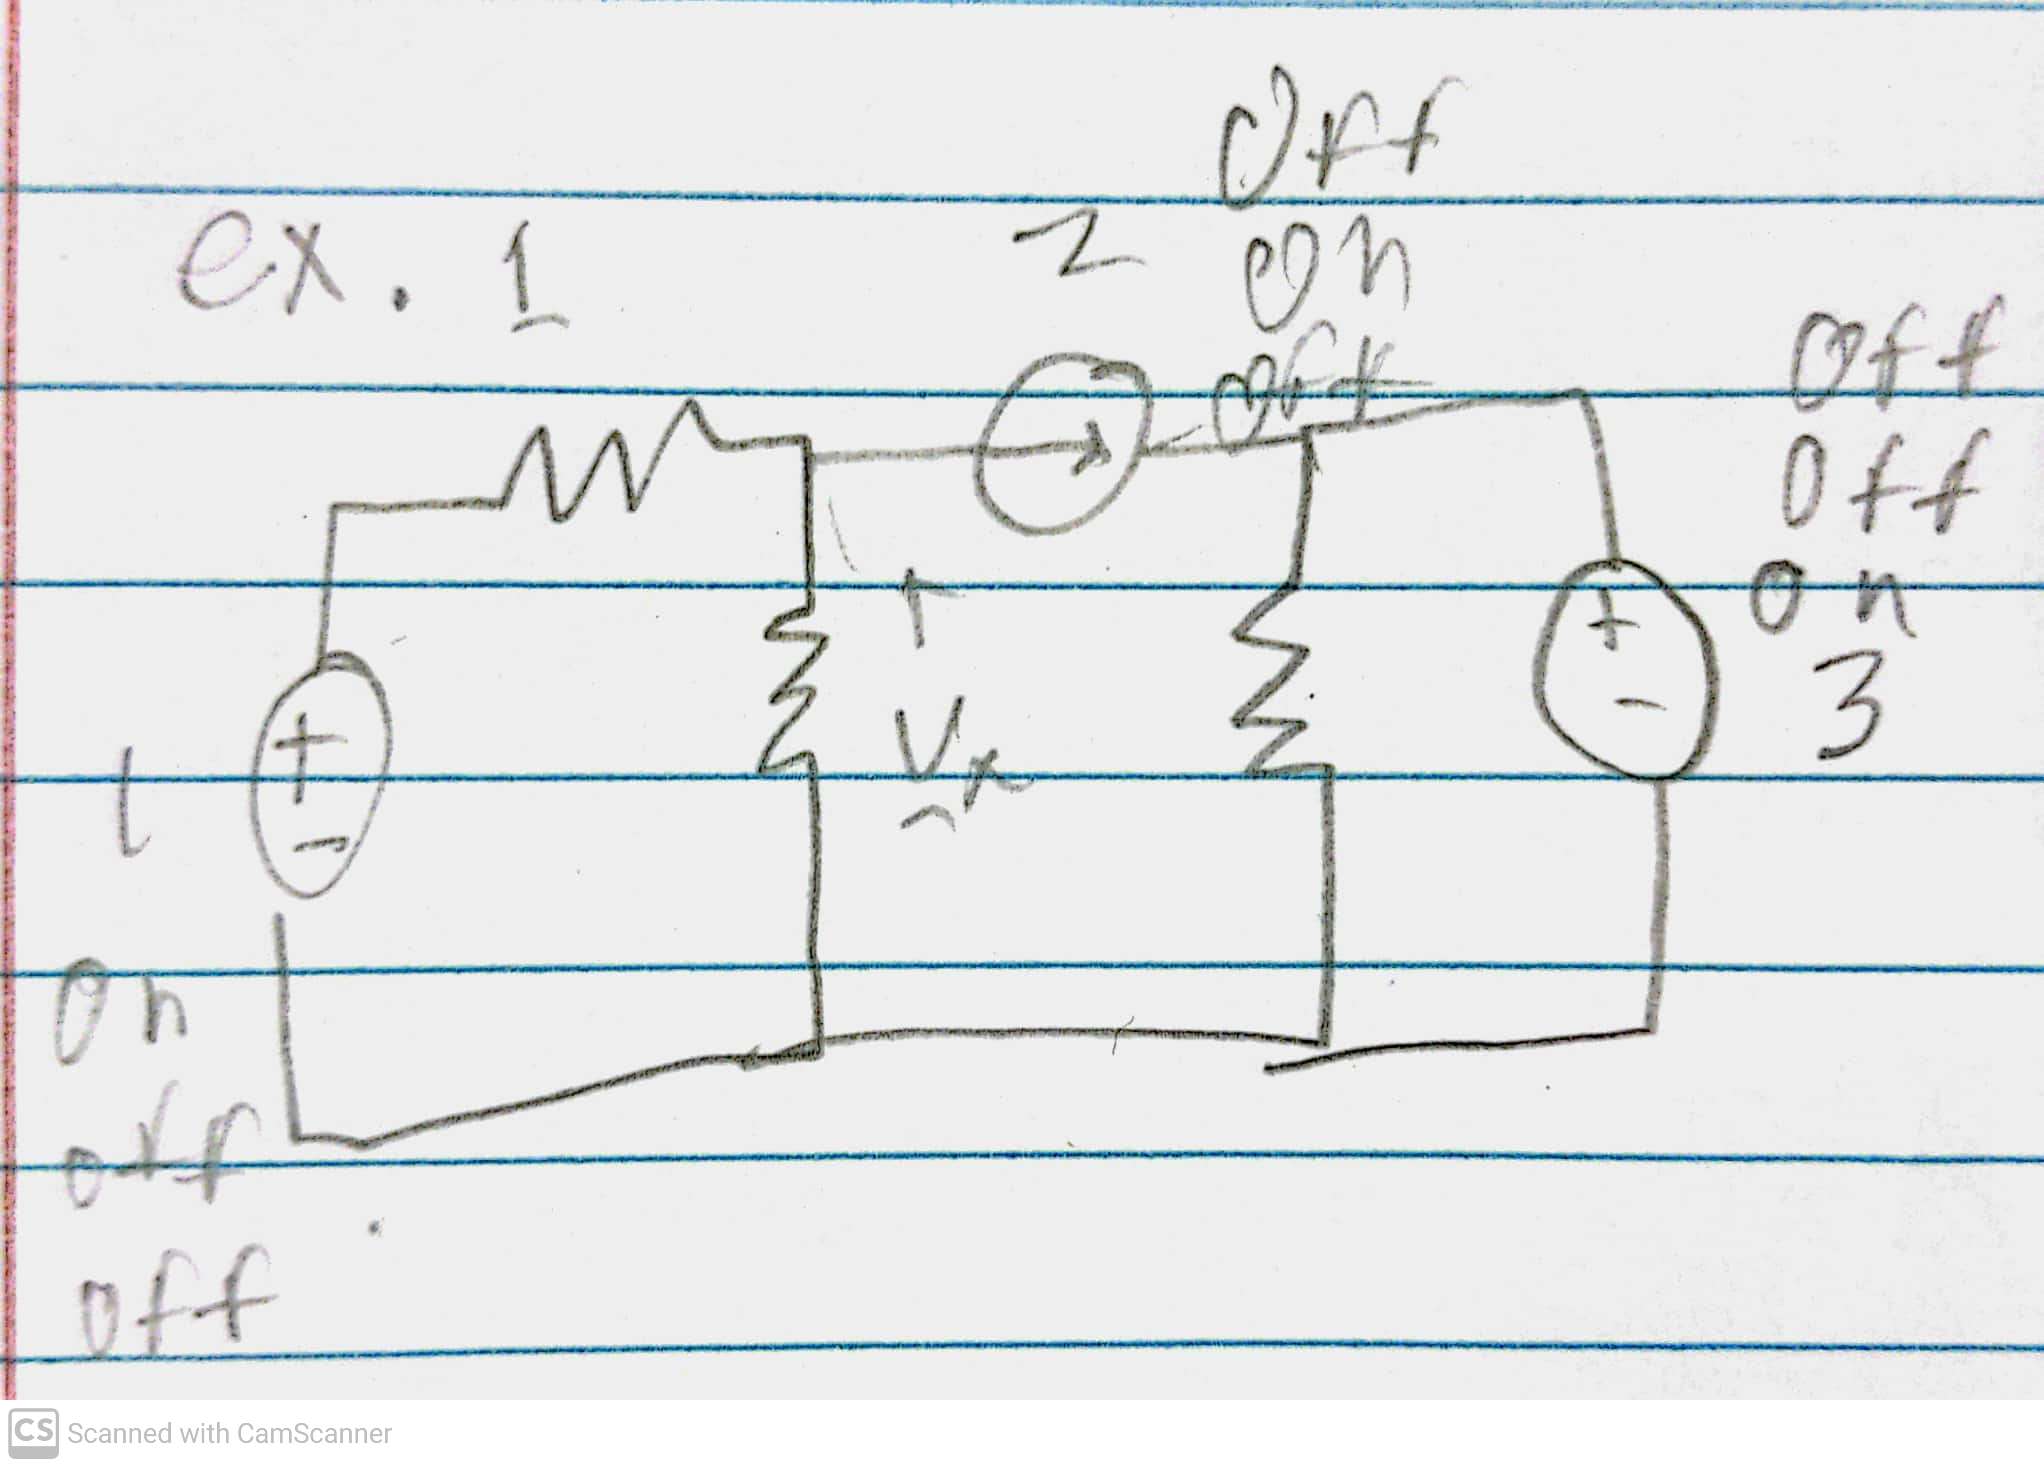 ex. 1
2
Off
On
Off
Off
Off
On
3
+
-
+
Vx
-
1
+
-
On
Off
Off
CS Scanned with CamScanner